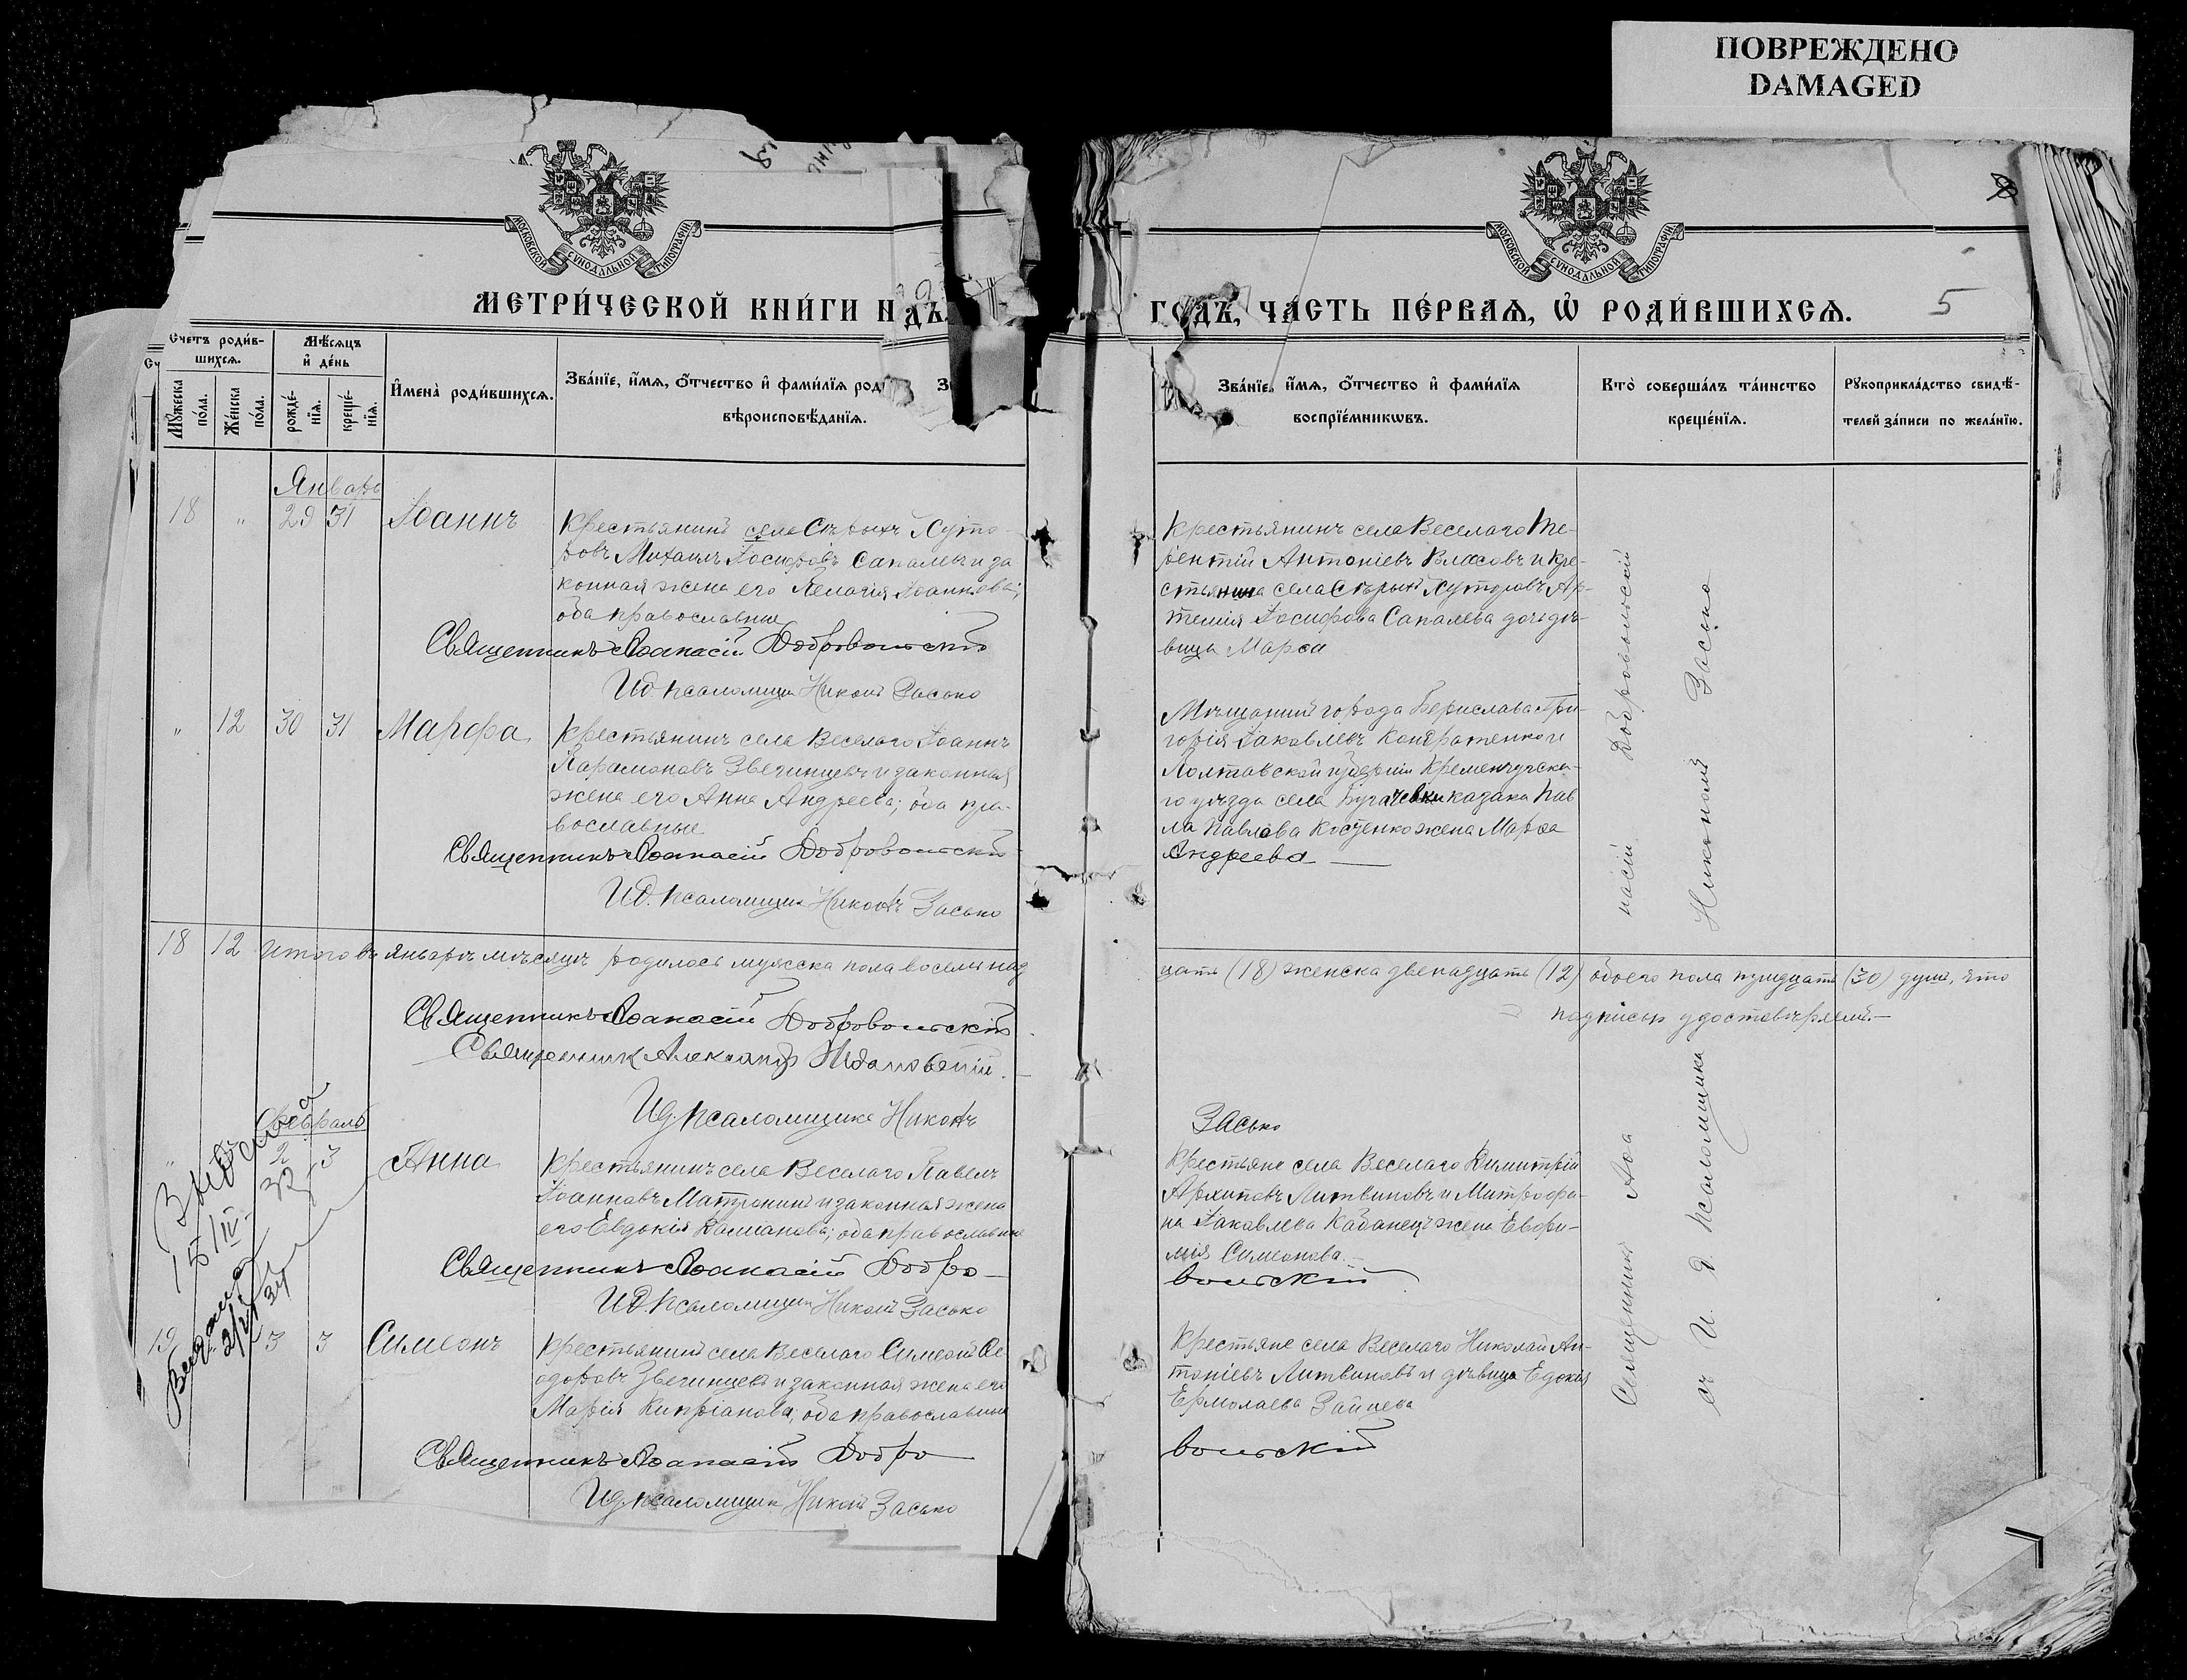 ПОВРЕЖДЕНО
DAMAGED
МОСКОВСКОЙ СѴНОДАЛЬНОЙ ТИПОГРАФІИ
МЕТРИ́ЧЕСКОЙ КНИ́ГИ Н
МОСКОВСКОЙ СѴНОДАЛЬНОЙ ТИПОГРАФІИ
ГОДЪ, ЧА́СТЬ ПЕ́РВАѦ, Ѡ҆ РОДИ́ВШИХСѦ.
5
Счетъ роди́в-
шихсѧ.
Мꙋ́жеска по́ла.
Же́нска по́ла.
Мѣ́сѧцъ
и҆ де́нь
рожде́-
нїѧ.
креще́-
нїѧ.
И҆мена̀ роди́вшихсѧ.
Зва́нїе, и҆́мѧ, ѻ҆́тчество и҆ фами́лїѧ род
вѣроисповѣ́данїѧ.
Зва́нїе, и҆́мѧ, ѻ҆́тчество и҆ фами́лїѧ
воспрїе́мникѡвъ.
Кто̀ соверша́лъ та́инство
креще́нїѧ.
Рꙋкоприкла́дство свидѣ́-
телей за́писи по жела́нїю.
Январь
18 " 29 31 Іоаннъ
Крестьянинъ села Сѣрыхъ Хуто-
ровъ Михаилъ Іосифовъ Сапалевъ и за
конная жена его Пелагія Іоаннова;
оба православные
Священникъ Аѳанасій Добровольскій
И.д. псаломщика Никонъ Засько
Крестьянинъ села Веселаго Те-
рентій Антоніевъ Власовъ и кре-
стьянина села Сѣрыхъ Хуторовъ Ар-
темія Іосифова Сапалева дочь дѣ-
вица Марѳа
" 12 30 31 Марфа
Крестьянинъ села Веселаго Іоаннъ
Парамоновъ Звегинцевъ и законная
жена его Анна Андреева; оба пра-
вославные
Священникъ Аѳанасій Добровольскій
И.д. псаломщика Никонъ Засько
Мѣщанинъ города Берислава Гри-
горій Іаковлевъ Кондратенко и
Полтавской губерніи Кременчугска-
го уѣзда села казака Пав
ла Павлова жена Марѳа
Андреева
18 12 Итого въ январѣ мѣсяцѣ родилось мужска пола восемнад
цать (18) женска двенадцать (12) обоего пола тридцать (30) душъ, что
подписью удостовѣряемъ.
Священникъ Аѳанасій Добровольскій
Священникъ Александръ
И.д. псаломщика Никонъ
Засько
Февраль
" 2 3 Анна
Крестьянинъ села Веселаго Павелъ
Іоанновъ и законная жена
его Евдокія Даміанова; оба православные
Священникъ Аѳанасій Добро-
вольскій
И.д. псаломщика Никонъ Засько
Крестьяне села Веселаго Димитрій
Архиповъ Литвиновъ и Митрофа-
на Іаковлева Кабанецъ жена Евфи-
мія Симеонова.
19 3 3 Симеонъ
Крестьянинъ села Веселаго Симеонъ Ѳе
одоровъ Звегинцевъ и законная жена его
Марія Кипріанова, оба православные
Священникъ Аѳанасій Добро
вольскій
И.д. псаломщика Никонъ Засько
Крестьяне села Веселаго Николай Ан-
тоніевъ Литвиновъ и дѣвица Евдокія
Ермолаева Зайцева
Священникъ Аѳа насій Добровольскій
съ И. д. псаломщика Никономъ Засько